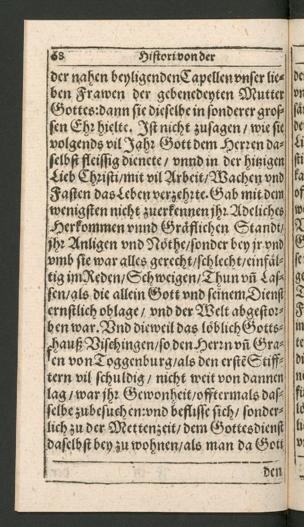 68 Histori von der
der nahen beyligenden Capellen vnser lie-
ben Frawen der gebenedeyten Mutter
Gottes: dann sie dieselbe in sonderer gros-
sen Ehr hielte. Ist nicht zusagen / wie sie
volgends vil Jahr Gott dem Herren da-
selbst fleissig dienete / vnnd in der hitzigen
Lieb Christi / mit vil Arbeit / Wachen vnd
Fasten das Leben verzehrte. Gab mit dem
wenigsten nicht zuerkennen jhr Adeliches
Herkommen vnnd Gräflichen Standt /
jhr Anligen vnd Nöthe / sonder bey jr vnd
vmb sie war alles gerecht / schlecht / einfäl-
tig im Reden / Schweigen / Thun vñ Las-
sen / als die allein Gott vnd seinem Dienst
ernstlich oblage / vnd der Welt abgestor-
ben war. Vnd dieweil das löblich Gotts-
hauß Vischingen / so den Herrn vñ Gra-
fen von Toggenburg / als den erstẽ Stiff-
tern vil schuldig / nicht weit von dannen
lag / war jhr Gewonheit / offtermals das-
selbe zubesuchen: vnd beflisse sich / sonder-
lich zu der Mettenzeit / dem Gottesdienst
daselbst bey zu wohnen / als man da Gott
den